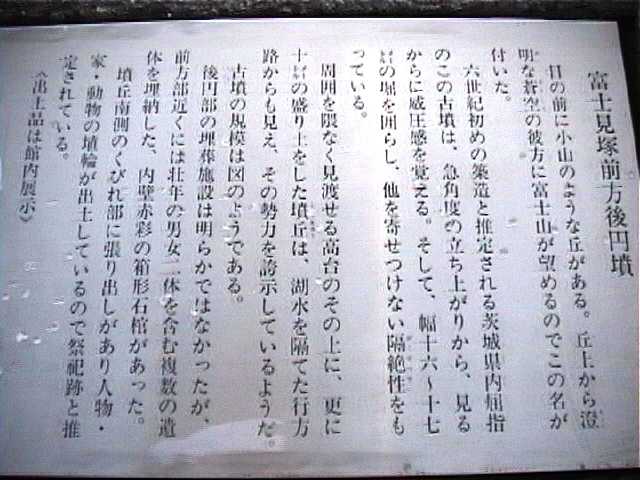 富士見塚前方後円墳
目の前に小山のような丘がある。丘上から澄
明な蒼空の彼方に富士山が望めるのでこの名が
付いた。
六世紀初めの築造と推定される茨城県内屈指
のこの古墳は、急角度の立ち上がりから、見る
からに威圧感を覚える。そして、幅十六〜十七
㍍の堀を囲らし、他を寄せつけない隔絶性をも
っている。
周囲を隈なく見渡せる高台のその上に、更に
十㍍の盛り土をした墳丘は、湖水を隔てた行方
路からも見え、その勢力を誇示しているようだ。
古墳の規模は図のようである。
後円部の埋葬施設は明らかではなかったが、
前方部近くには壮年の男女二体を含む複数の遺
体を埋納した、内壁赤彩の箱形石棺があった。
墳丘南側のくびれ部に張り出しがあり人物・
家・動物の埴輪が出土しているので祭祀跡と推
定されている。
《出土品は館内展示》